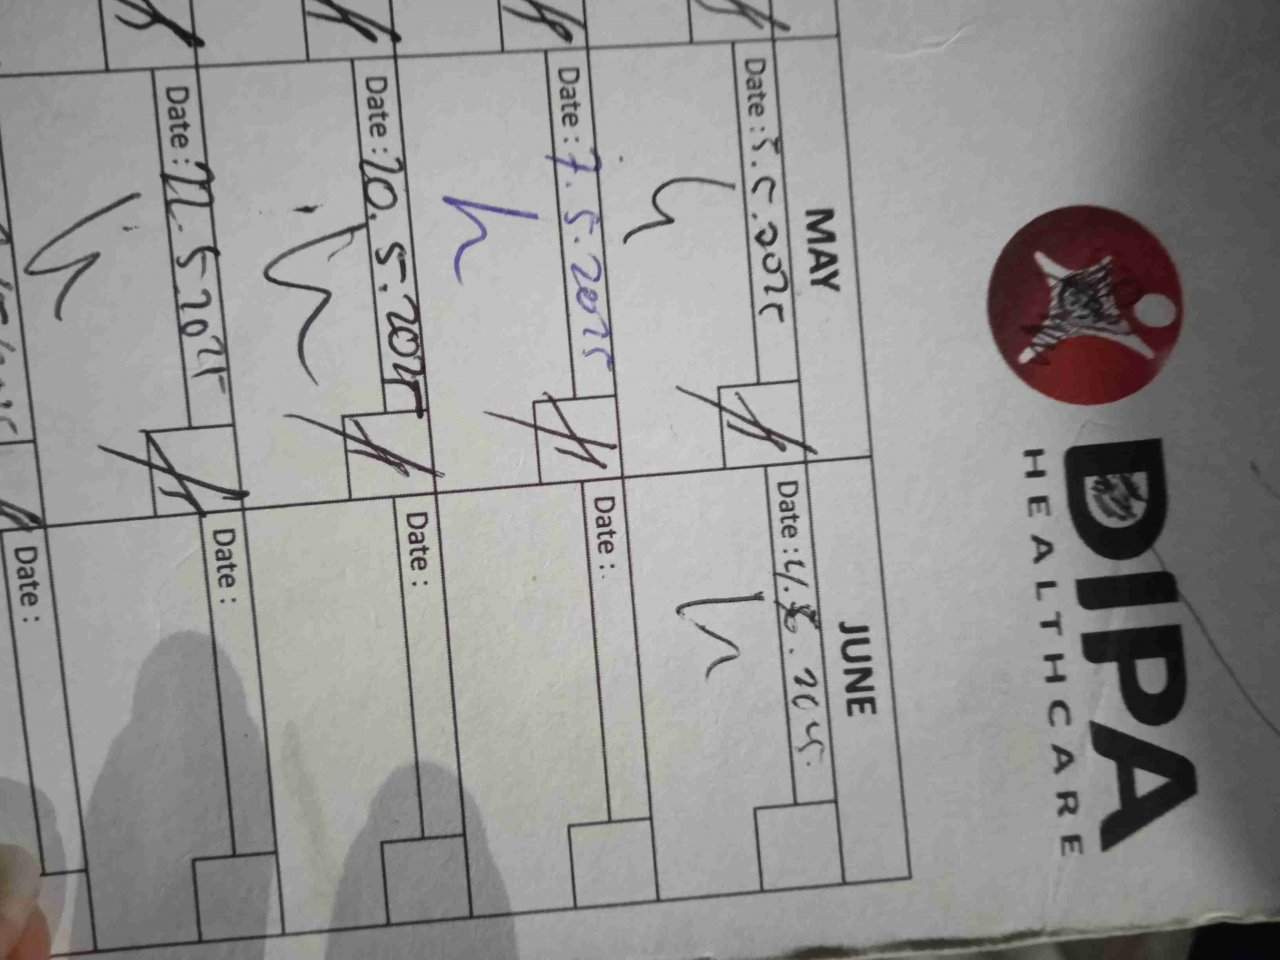 DIPA
HEALTHCARE
MAY
JUNE
Date : 5.5.2025
Date : 4.6.2025.
Date : 7.5.2025
Date :
Date : 20.5.2025
Date :
Date : 22.5.2025
Date :
Date :